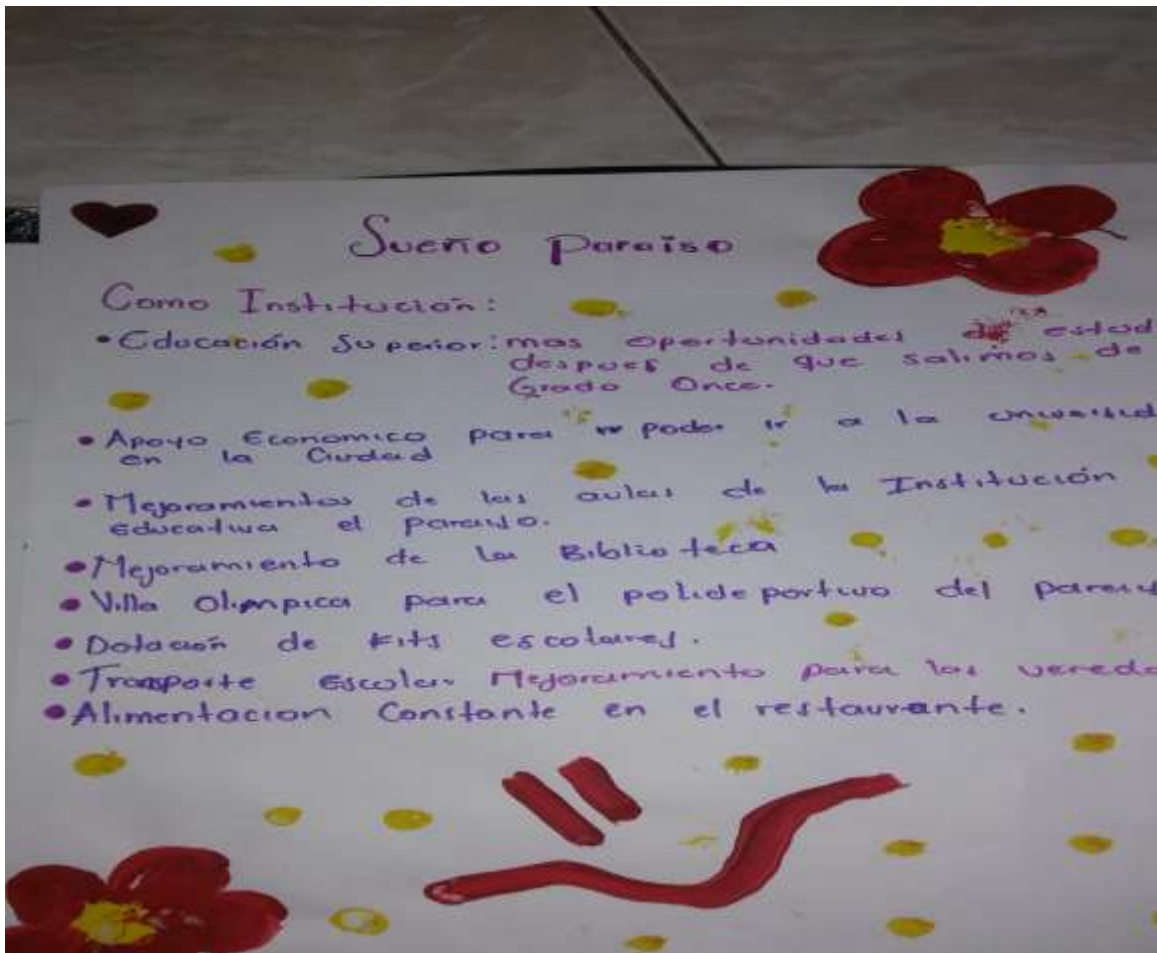 Sueño Paraiso
Como Institución:
• Educación Superior: mas oportunidades de estud
despues de que salimos de
Grado Once.
• Apoyo Economico para poder ir a la universid
en la Ciudad
• Mejoramientos de las aulas de la Institución
Educativa el paraiso.
• Mejoramiento de la Biblioteca
• Villa Olimpica para el polideportivo del parais
• Dotación de kits escolares.
• Transporte Escolar Mejoramiento para las vereda
• Alimentacion Constante en el restaurante.